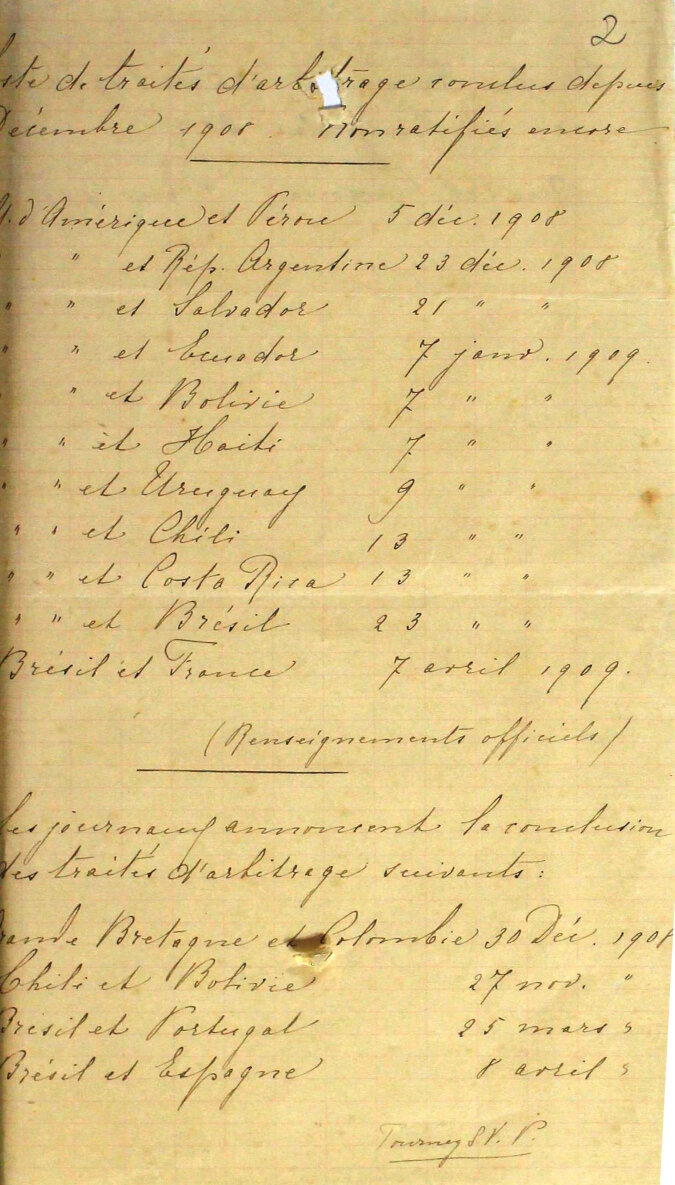 2
ste de traités d'arbitrage conclus depuis
Décembre 1908. Non ratifiés encore
U. d'Amérique et Pérou 5 déc. 1908
" et Rép. Argentine 23 déc. 1908
" " et Salvador 21 " "
" " et Ecuador 7 janv. 1909.
" et Bolivie 7 " "
" " et Haiti 7 " "
" " et Uruguay 9 " "
" " et Chili 13 " "
" " et Costa Rica 13 " "
" " et Brésil 23 " "
Brésil et France 7 avril 1909.
(Renseignements officiels)
Les journaux annoncent la conclusion
des traités d'arbitrage suivants:
rande Bretagne et Colombie 30 Déc. 1908
Chili et Bolivie 27 nov. "
Brésil et Portugal 25 mars "
Brésil et Espagne 8 avril "
Tournez S.V.P.